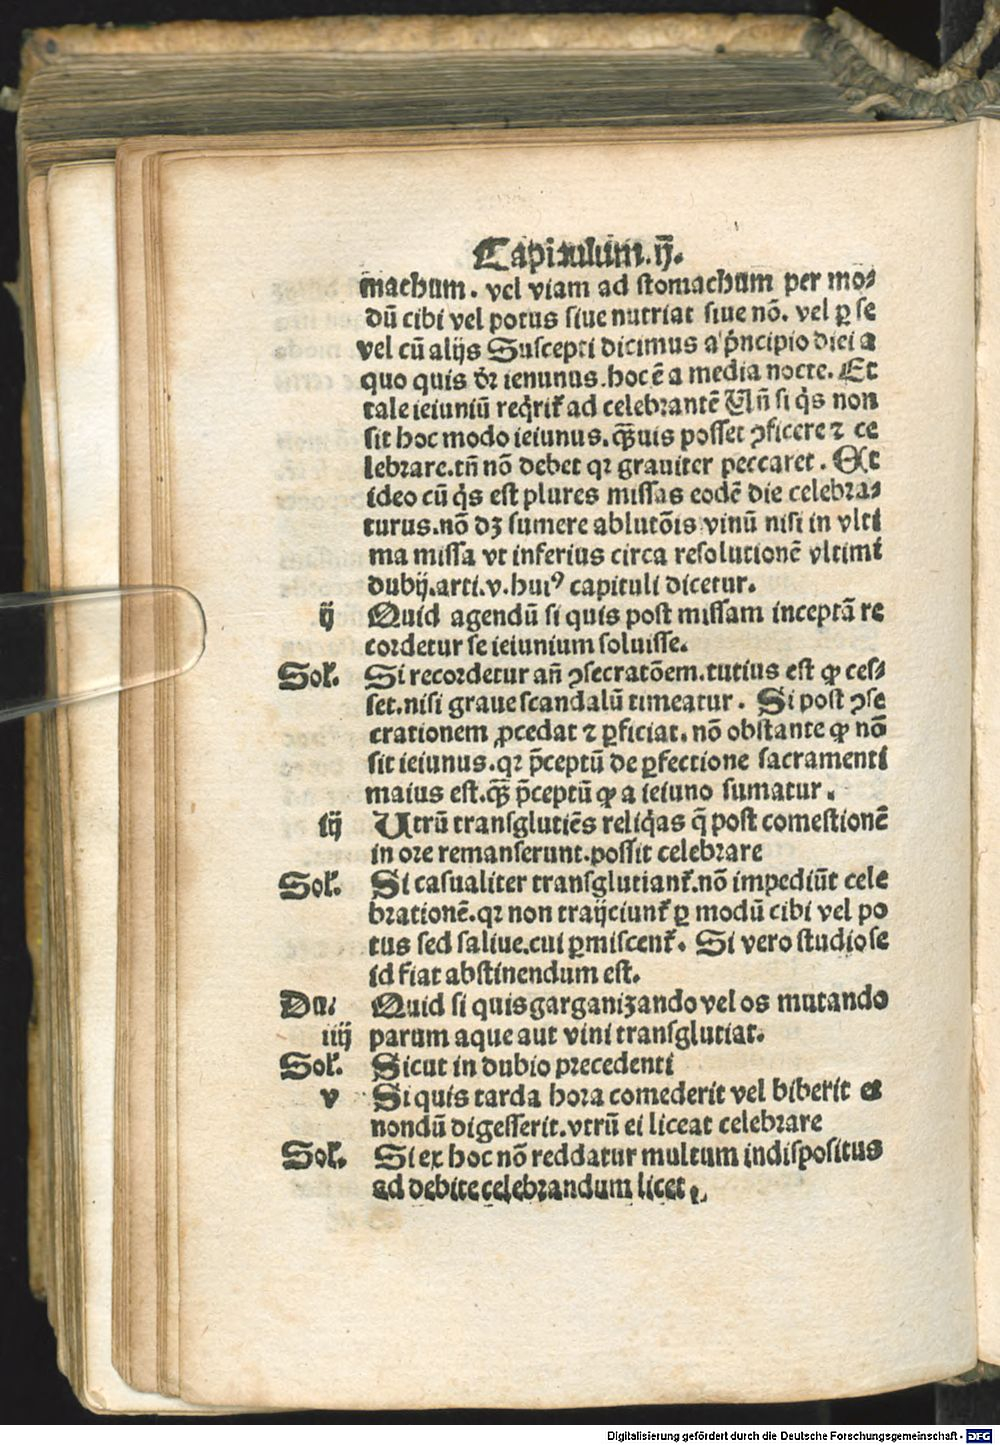 Capitulum.ij.
machum. vel viam ad stomachum per mo⸗
dū cibi vel potus siue nutriat siue nō. vel ꝑ se
vel cū alijs Suscepti dicimus a p̄ncipio diei a
quo quis dr̄ ieiunus.hoc ē a media nocte. Et
tale ieiuniū reqͥrit̄ ad celebrantē Vn̄ si qͥs non
sit hoc modo ieiunus.qͣuis posset ꝯficere ⁊ ce
lebrare.tn̄ nō debet qꝛ grauiter peccaret. Et
ideo cū qͥs est plures missas eodē die celebra⸗
turus.nō dꝫ sumere ablutōis vinū nisi in vlti
ma missa vt inferius circa resolutionē vltimi
dubij.arti.v.huiꝰ capituli dicetur.
ij Quid agendū si quis post missam inceptā re
cordetur se ieiunium soluisse.
Sol̄. Si recordetur an̄ ꝯsecratōem.tutius est ꝙ ces⸗
set.nisi graue scandalū timeatur. Si post ꝯse
crationem ꝓcedat ⁊ ꝑficiat.nō obstante ꝙ nō
sit ieiunus.qꝛ p̄ceptū de ꝑfectione sacramenti
maius est.qͣꝫ p̄ceptū ꝙ a ieiuno sumatur.
iij Utrū transglutiēs reliqͥas q̄ post comestionē
in ore remanserunt.possit celebrare
Sol̄. Si casualiter transglutiant̄.nō impediūt cele
brationē.qꝛ non traijciunt̄ ꝑ modū cibi vel po
tus sed saliue.cui ꝑmiscent̄. Si vero studiose
id fiat abstinendum est.
Du. Quid si quis garganizando vel os mutando
iiij parum aque aut vini transglutiat.
Sol̄. Sicut in dubio precedenti
v Si quis tarda hora comederit vel biberit et
nondū digesserit.vtrū ei liceat celebrare
Sol̄. Si ex hoc nō reddatur multum indispositus
ad debite celebrandum licet
Digitalisierung gefördert durch die Deutsche Forschungsgemeinschaft - DFG